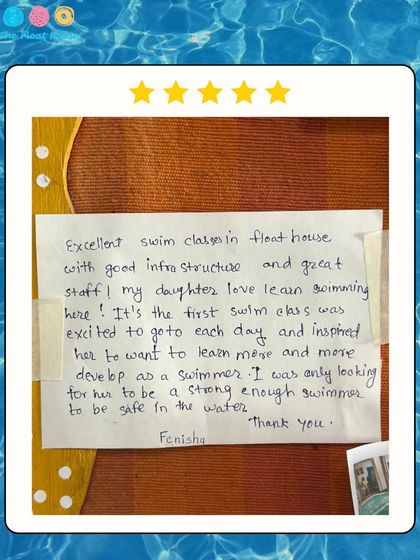 The Float House
Excellent swim classes in float house
with good infrastructure and great
staff! my daughter love learn swimming
here! It's the first swim class was
excited to goto each day and inspired
her to want to learn more and more
develop as a swimmer. I was only looking
for her to be a strong enough swimmer
to be safe in the water
Thank you.
Fenisha